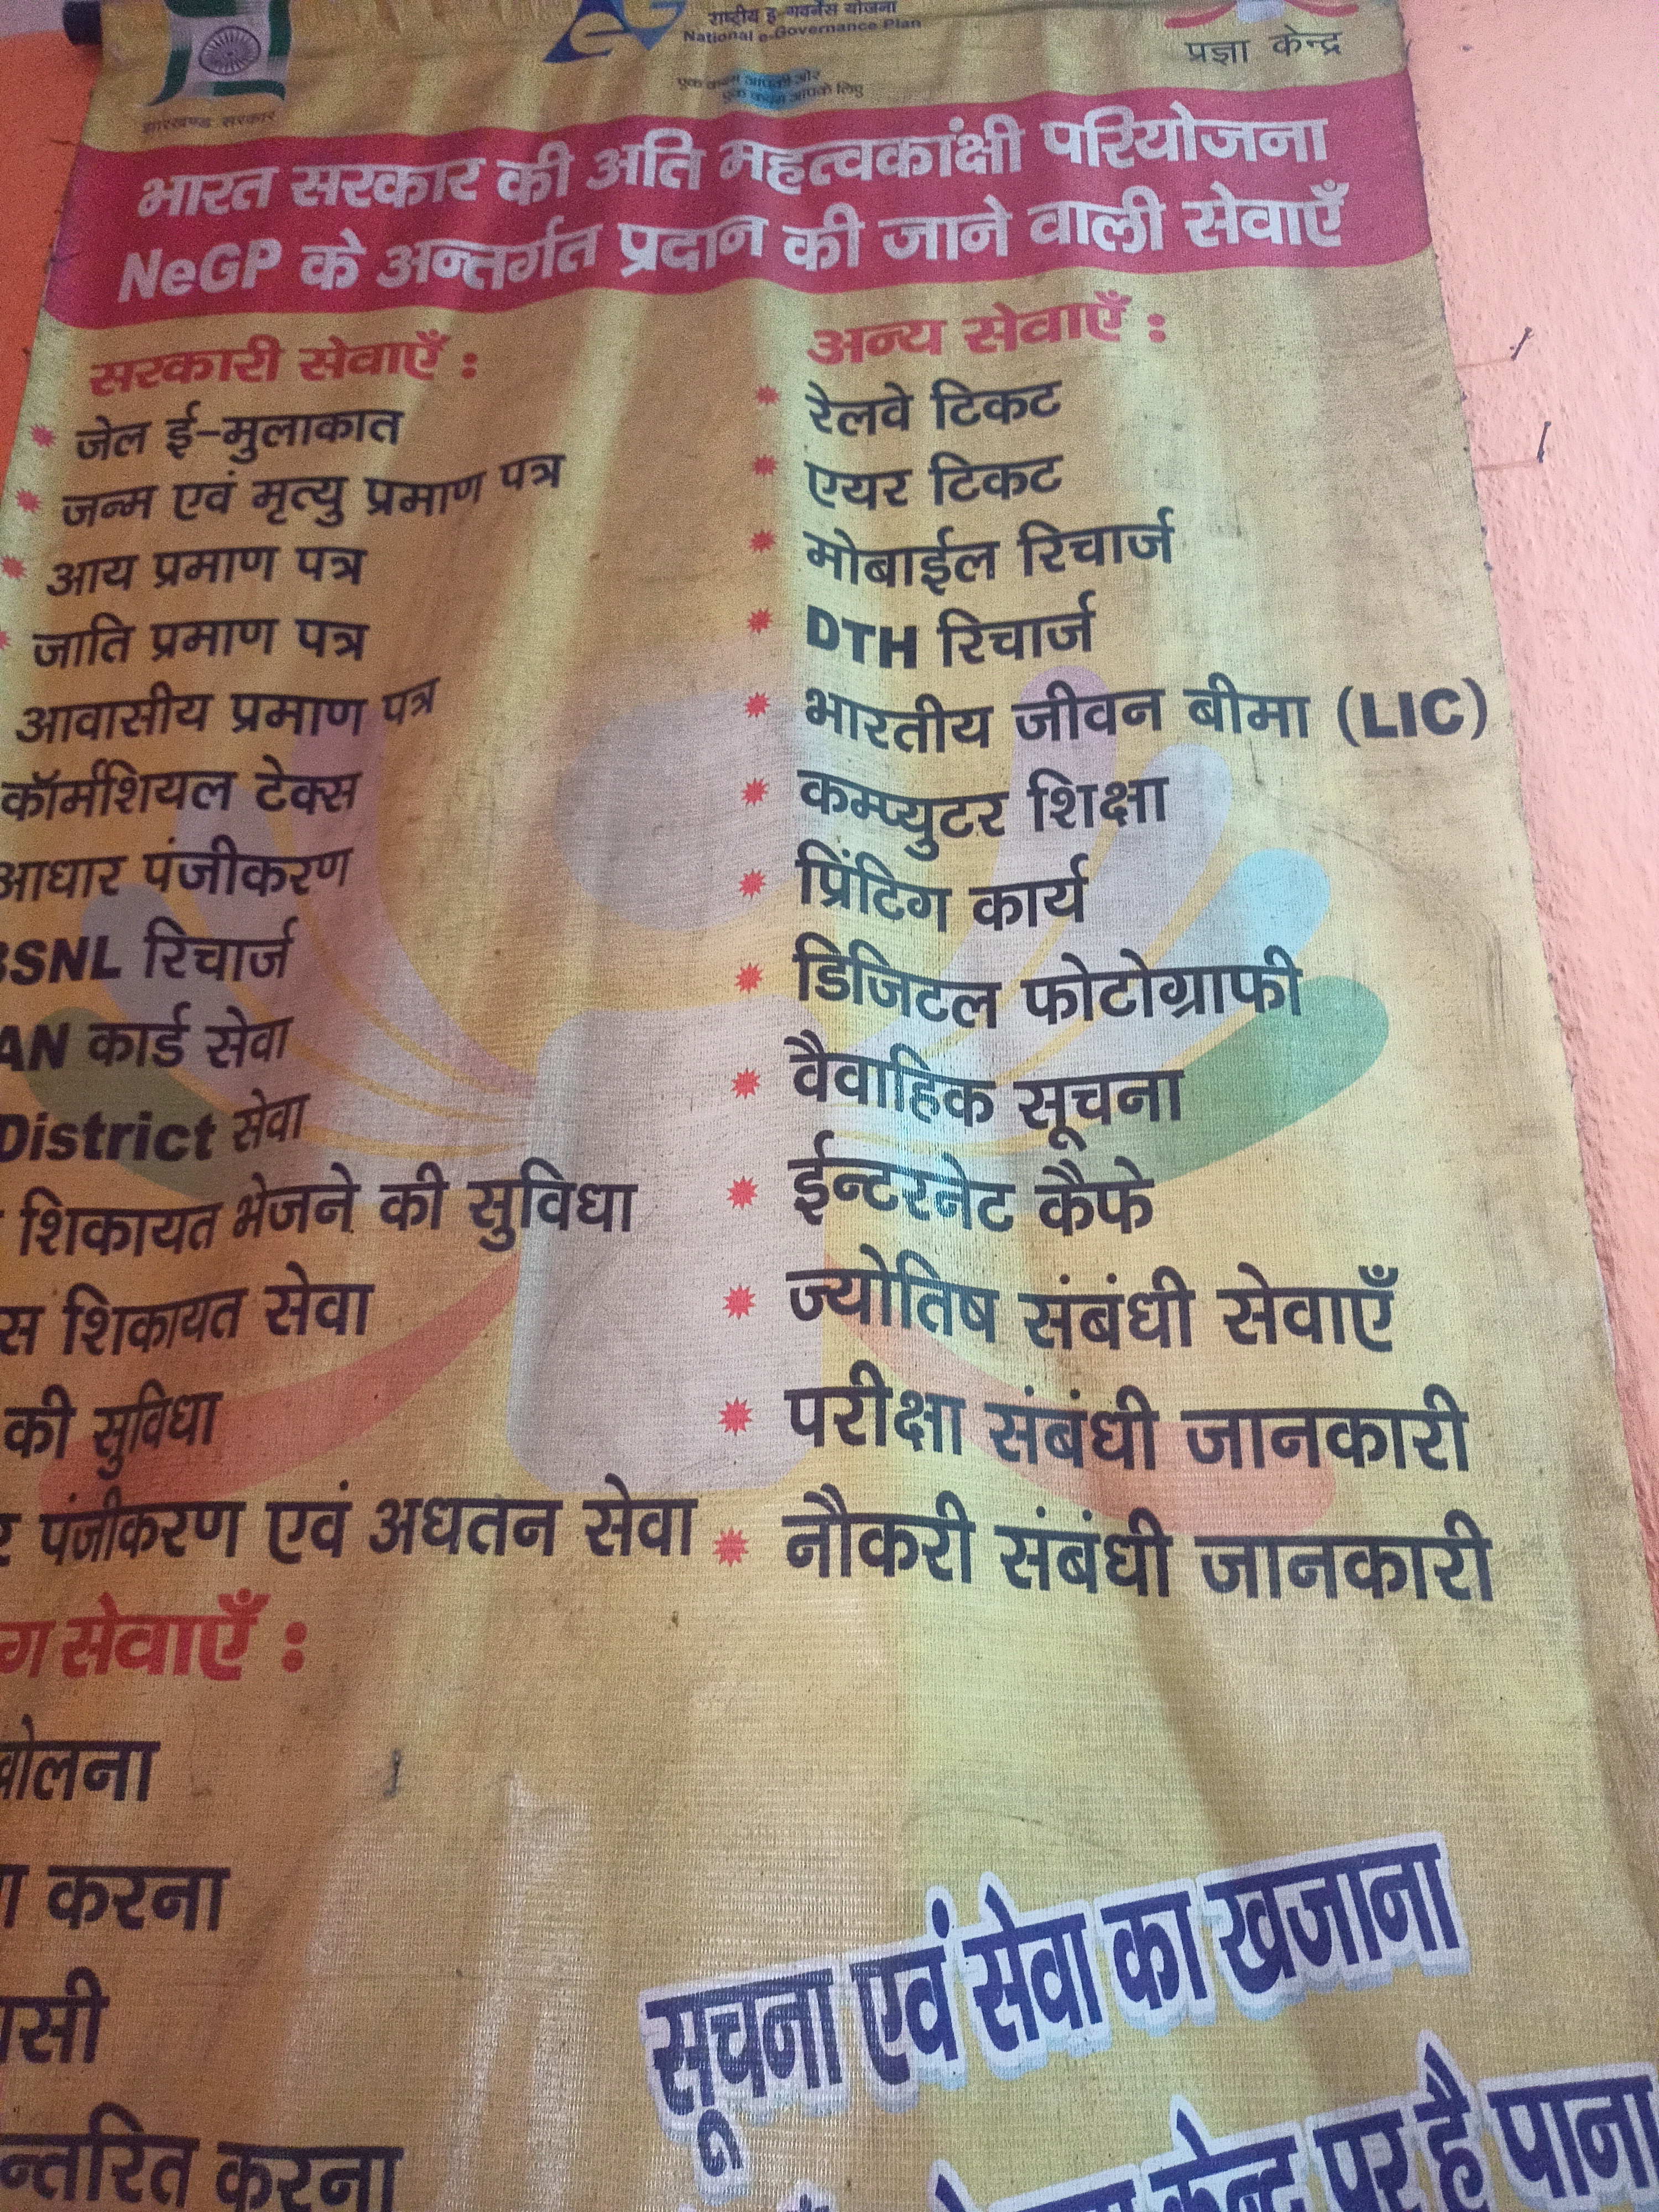 राष्ट्रीय इ-गवर्नेंस योजना
National e-Governance Plan
प्रज्ञा केन्द्र
एक कदम आपकी ओर
एक कदम आपके लिए
झारखण्ड सरकार
भारत सरकार की अति महत्वकांक्षी परियोजना
NeGP के अन्तर्गत प्रदान की जाने वाली सेवाएँ
सरकारी सेवाएँ :
जेल ई-मुलाकात
जन्म एवं मृत्यु प्रमाण पत्र
आय प्रमाण पत्र
जाति प्रमाण पत्र
आवासीय प्रमाण पत्र
कॉर्मशियल टेक्स
आधार पंजीकरण
BSNL रिचार्ज
AN कार्ड सेवा
District सेवा
शिकायत भेजने की सुविधा
स शिकायत सेवा
की सुविधा
र पंजीकरण एवं अधतन सेवा
ग सेवाएँ :
खोलना
करना
न्तरित करना
अन्य सेवाएँ :
रेलवे टिकट
एयर टिकट
मोबाईल रिचार्ज
DTH रिचार्ज
भारतीय जीवन बीमा (LIC)
कम्प्युटर शिक्षा
प्रिंटिग कार्य
डिजिटल फोटोग्राफी
वैवाहिक सूचना
ईन्टरनेट कैफे
ज्योतिष संबंधी सेवाएँ
परीक्षा संबंधी जानकारी
नौकरी संबंधी जानकारी
सूचना एवं सेवा का खजाना
केन्द्र पर है पाना